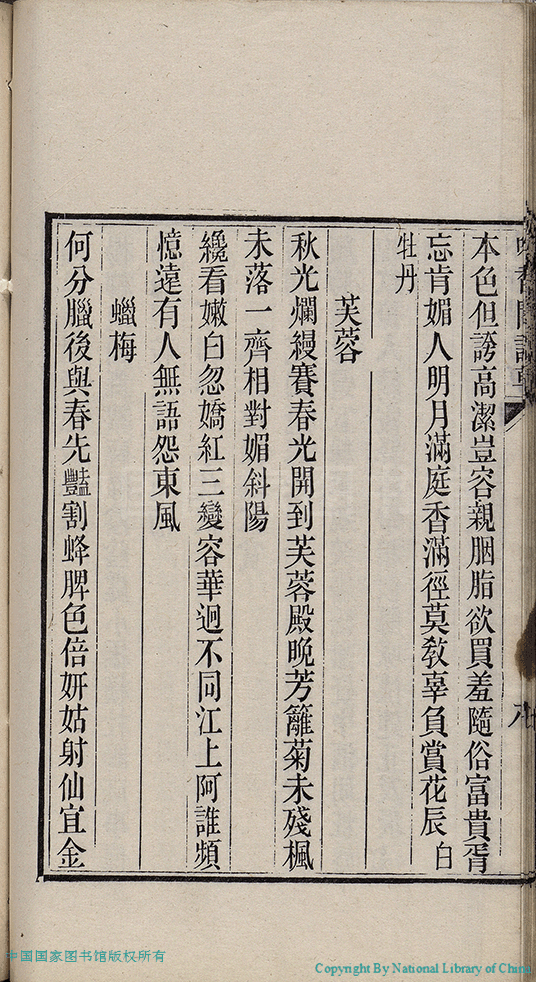 本色但誇高潔豈容親胭脂欲買羞隨俗富貴胥
忘肯媚人明月滿庭香滿徑莫教辜負賞花辰白
牡丹
芙蓉
秋光爛縵賽春光開到芙蓉殿晚芳籬菊未殘楓
未落一齊相對媚斜陽
纔看嫩白忽嬌紅三變容華迥不同江上阿誰頻
憶遠有人無語怨東風
蠟梅
何分臘後與春先豔割蜂脾色倍妍姑射仙宜金
中国国家图书馆版权所有
Copyright By National Library of China